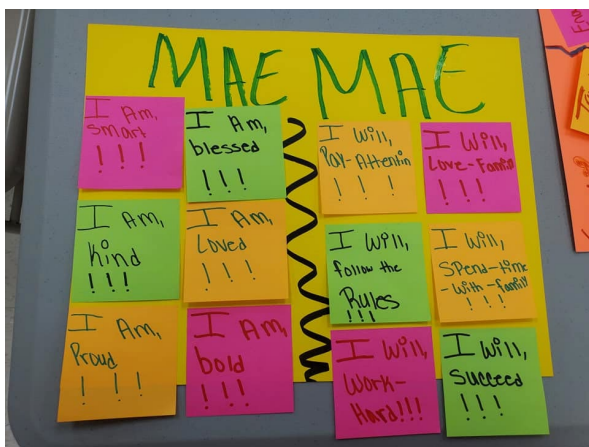 MAE MAE
I Am,
smart
! ! !
I Am,
blessed
! ! !
I Am,
Kind
! ! !
I Am,
Loved
! ! !
I Am,
Proud
! ! !
I Am,
bold
! ! !
I Will,
Pay-Attentin
! ! !
I Will,
Love-Family
! ! !
I Will,
follow the
Rules
!!!
I Will,
Spend-time
-with-family
! ! !
I Will,
Work-
Hard!!!
I Will,
Succeed
! ! !